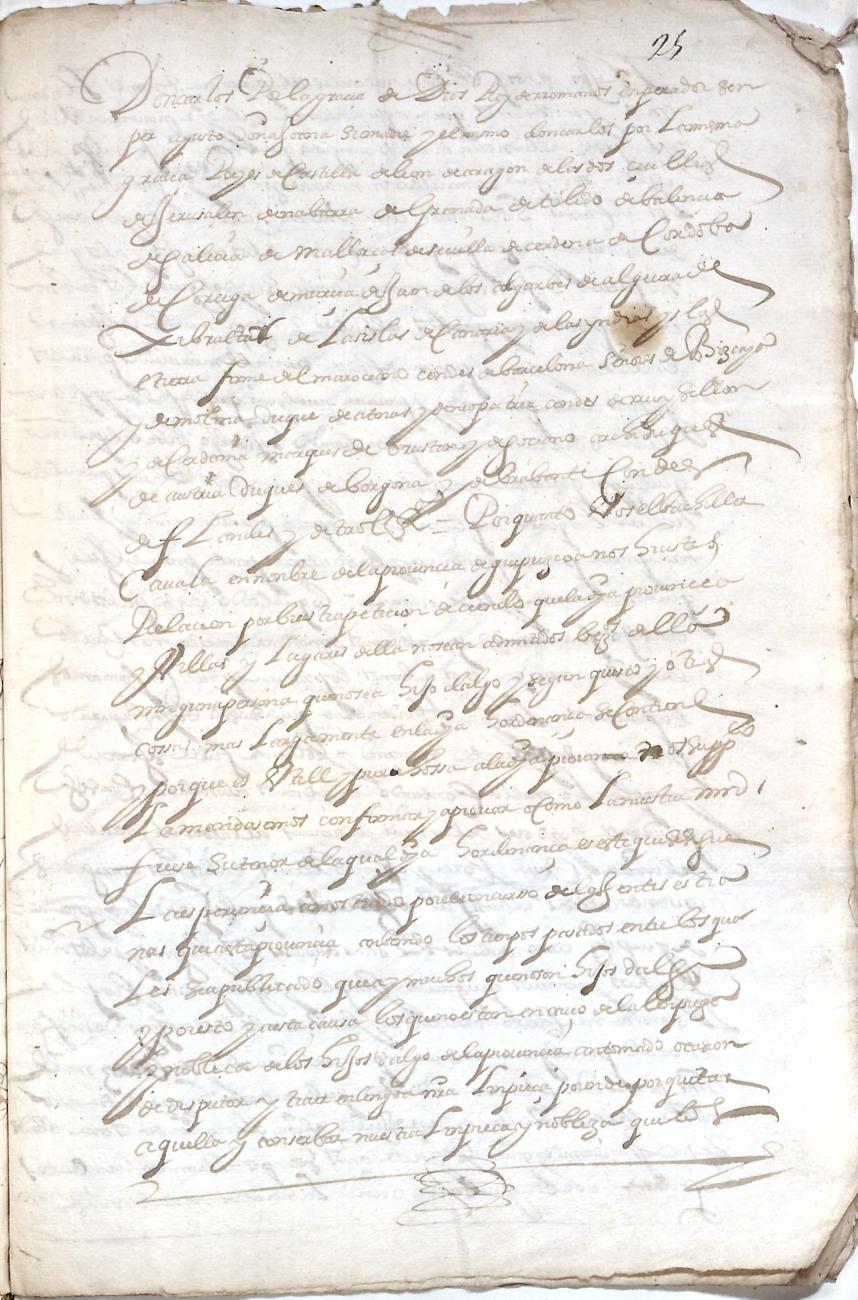 25
Don carlos Por la gracia de Dios Rey de rromanos enperador sen
per agusto Doña Joana su madre y el mismo don carlos por La mesma
gracia Reyes de Castilla de leon de aragon de las dos cicillias
de Jerusalen de nabarra de Granada de toledo de balencia
de galicia de mallorcas de sevilla de cerdeña de Cordoba
de Corcega de murcia de Jaen de los algarbes de algezira de
Gibraltar de Las islas de Canaria y de las yndias yslas
e tierra firme del mar oceano condes de barcelona Señores de Bizcaya
y de molina duques de atenas y de neopatria condes de rruysellon
y de Cerdania marqueses de oristan y de gociano archiduques
de austria Duques de borgoña y de brabante Condes
de flandes y de tirol &ª = Por quanto Vos el bachiller
Çavala en nonbre de la provincia de guipuzcoa nos hizistes
Relacion por buestra peticion diciendo que la dha provincia
y Villas y Lugares della no sean admitidos por bezº dellos
ninguna persona que no sea hijo dalgo y segun questo y otras
cosas mas Largamente en la dha hordenança se contiene
y porque es Util y probechossa a la dha provincia nos suppco
La mandasemos confirmar y aprovar o como La nuestra md
fuese su tenor de la qual dha hordenança es este que se sigue
La esperiencia a mostrado por el concurso de las gentes estra
ñas que a esta provincia an benido los tiempos pasados entre los qua
Les se a publicado que ay muchos que no son hijos dalgo
y por esto y a esta causa los que no estan en cavo de la limpieza
y nobleza de los hijos dalgo de la provincia an tomado ocasion
de disputar y traer en lengua nra Linpieca por ende por quitar
aquella y conserbar nuestra Linpieca y nobleza que los